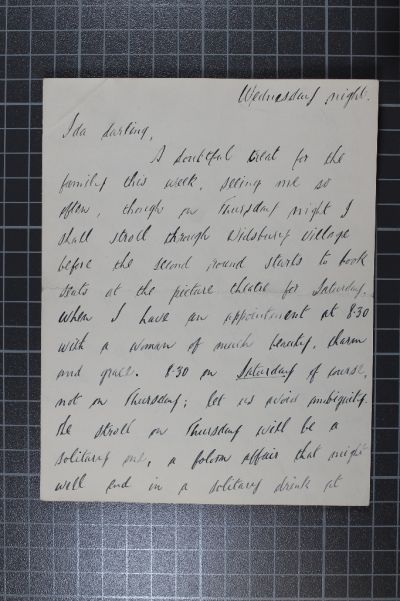 Wednesday night.
Ida darling,
A doubtful treat for the
family this week, seeing me so
often, though on Thursday night I
shall stroll through Didsbury Village
before the second round starts to book
seats at the picture theatre for Saturday.
When I have an appointment at 8.30
with a woman of much beauty, charm
and grace. 8.30 on Saturday of course,
not on Thursday; let us avoid ambiguity.
The stroll on Thursday will be a
solitary one, a forlorn affair that might
well end in a solitary drink at